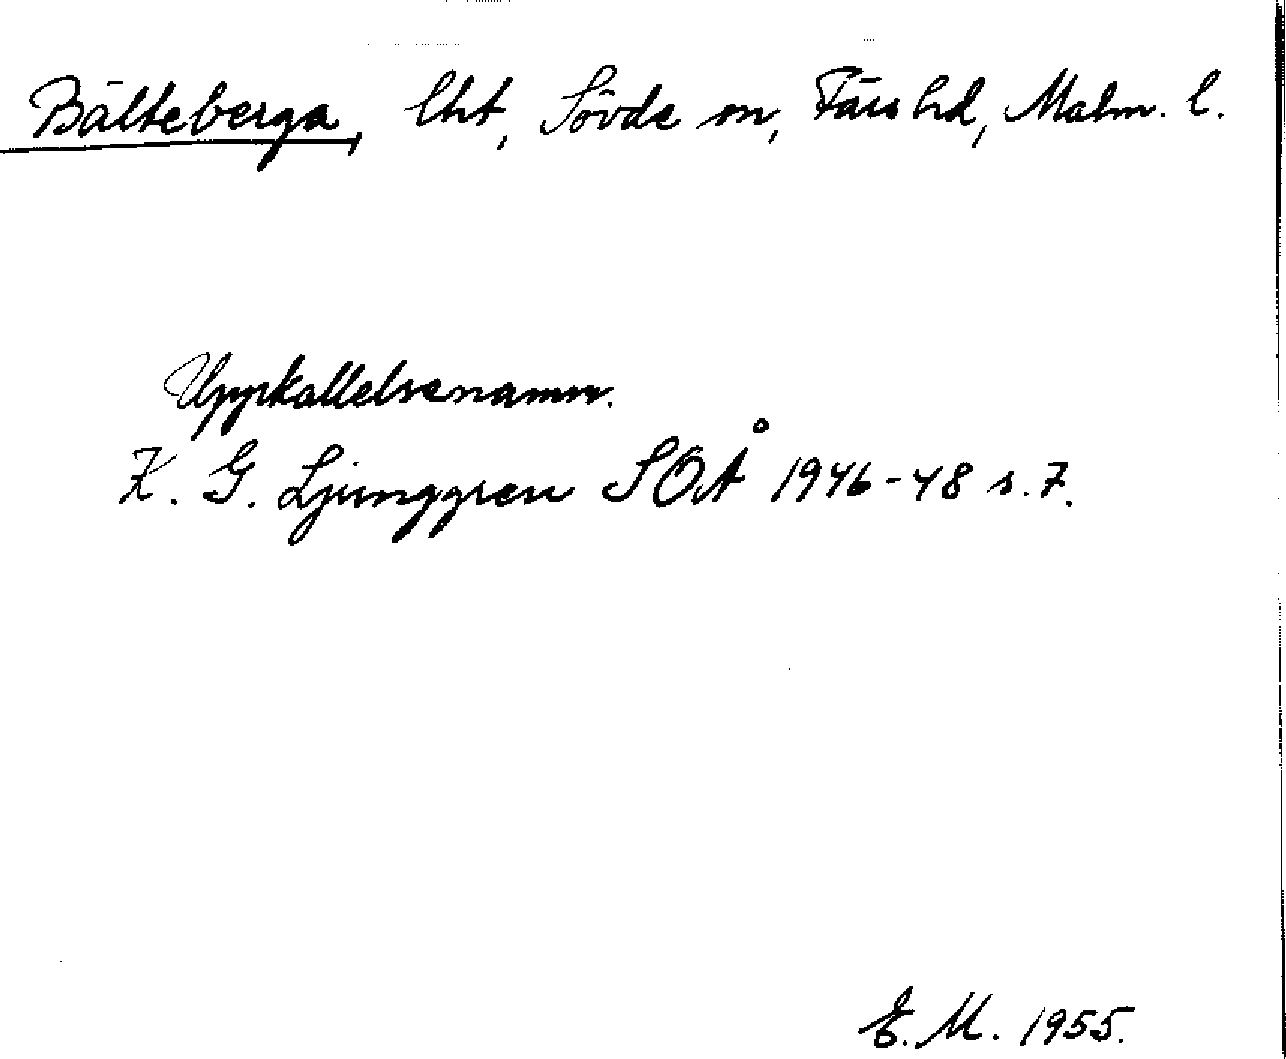 Bälteberga, lht, Sövde sn, Färs hd, Malm. l.
Uppkallelsenamn.
K. G. Ljunggren SOÅ 1946-48 s. 7.
E. M. 1955.